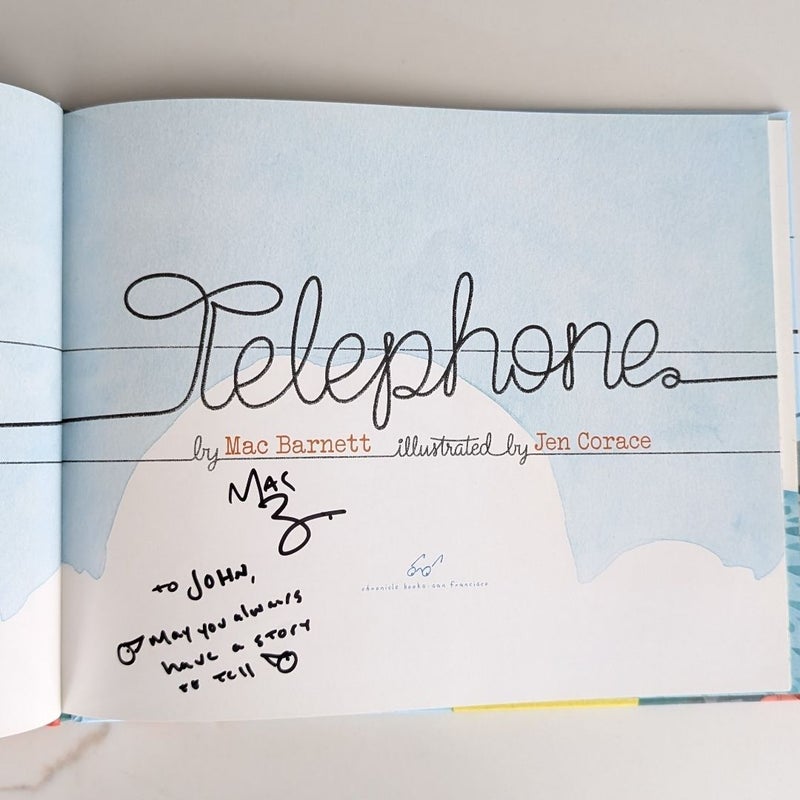 Telephone
by Mac Barnett illustrated by Jen Corace
Mac
B
chronicle books · san francisco
to JOHN,
May you always
have a story
to tell